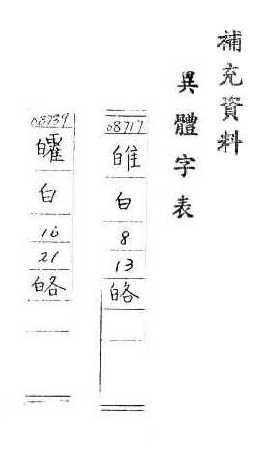 補充資料
異體字表
08717
白
8
13
08739
白
16
21